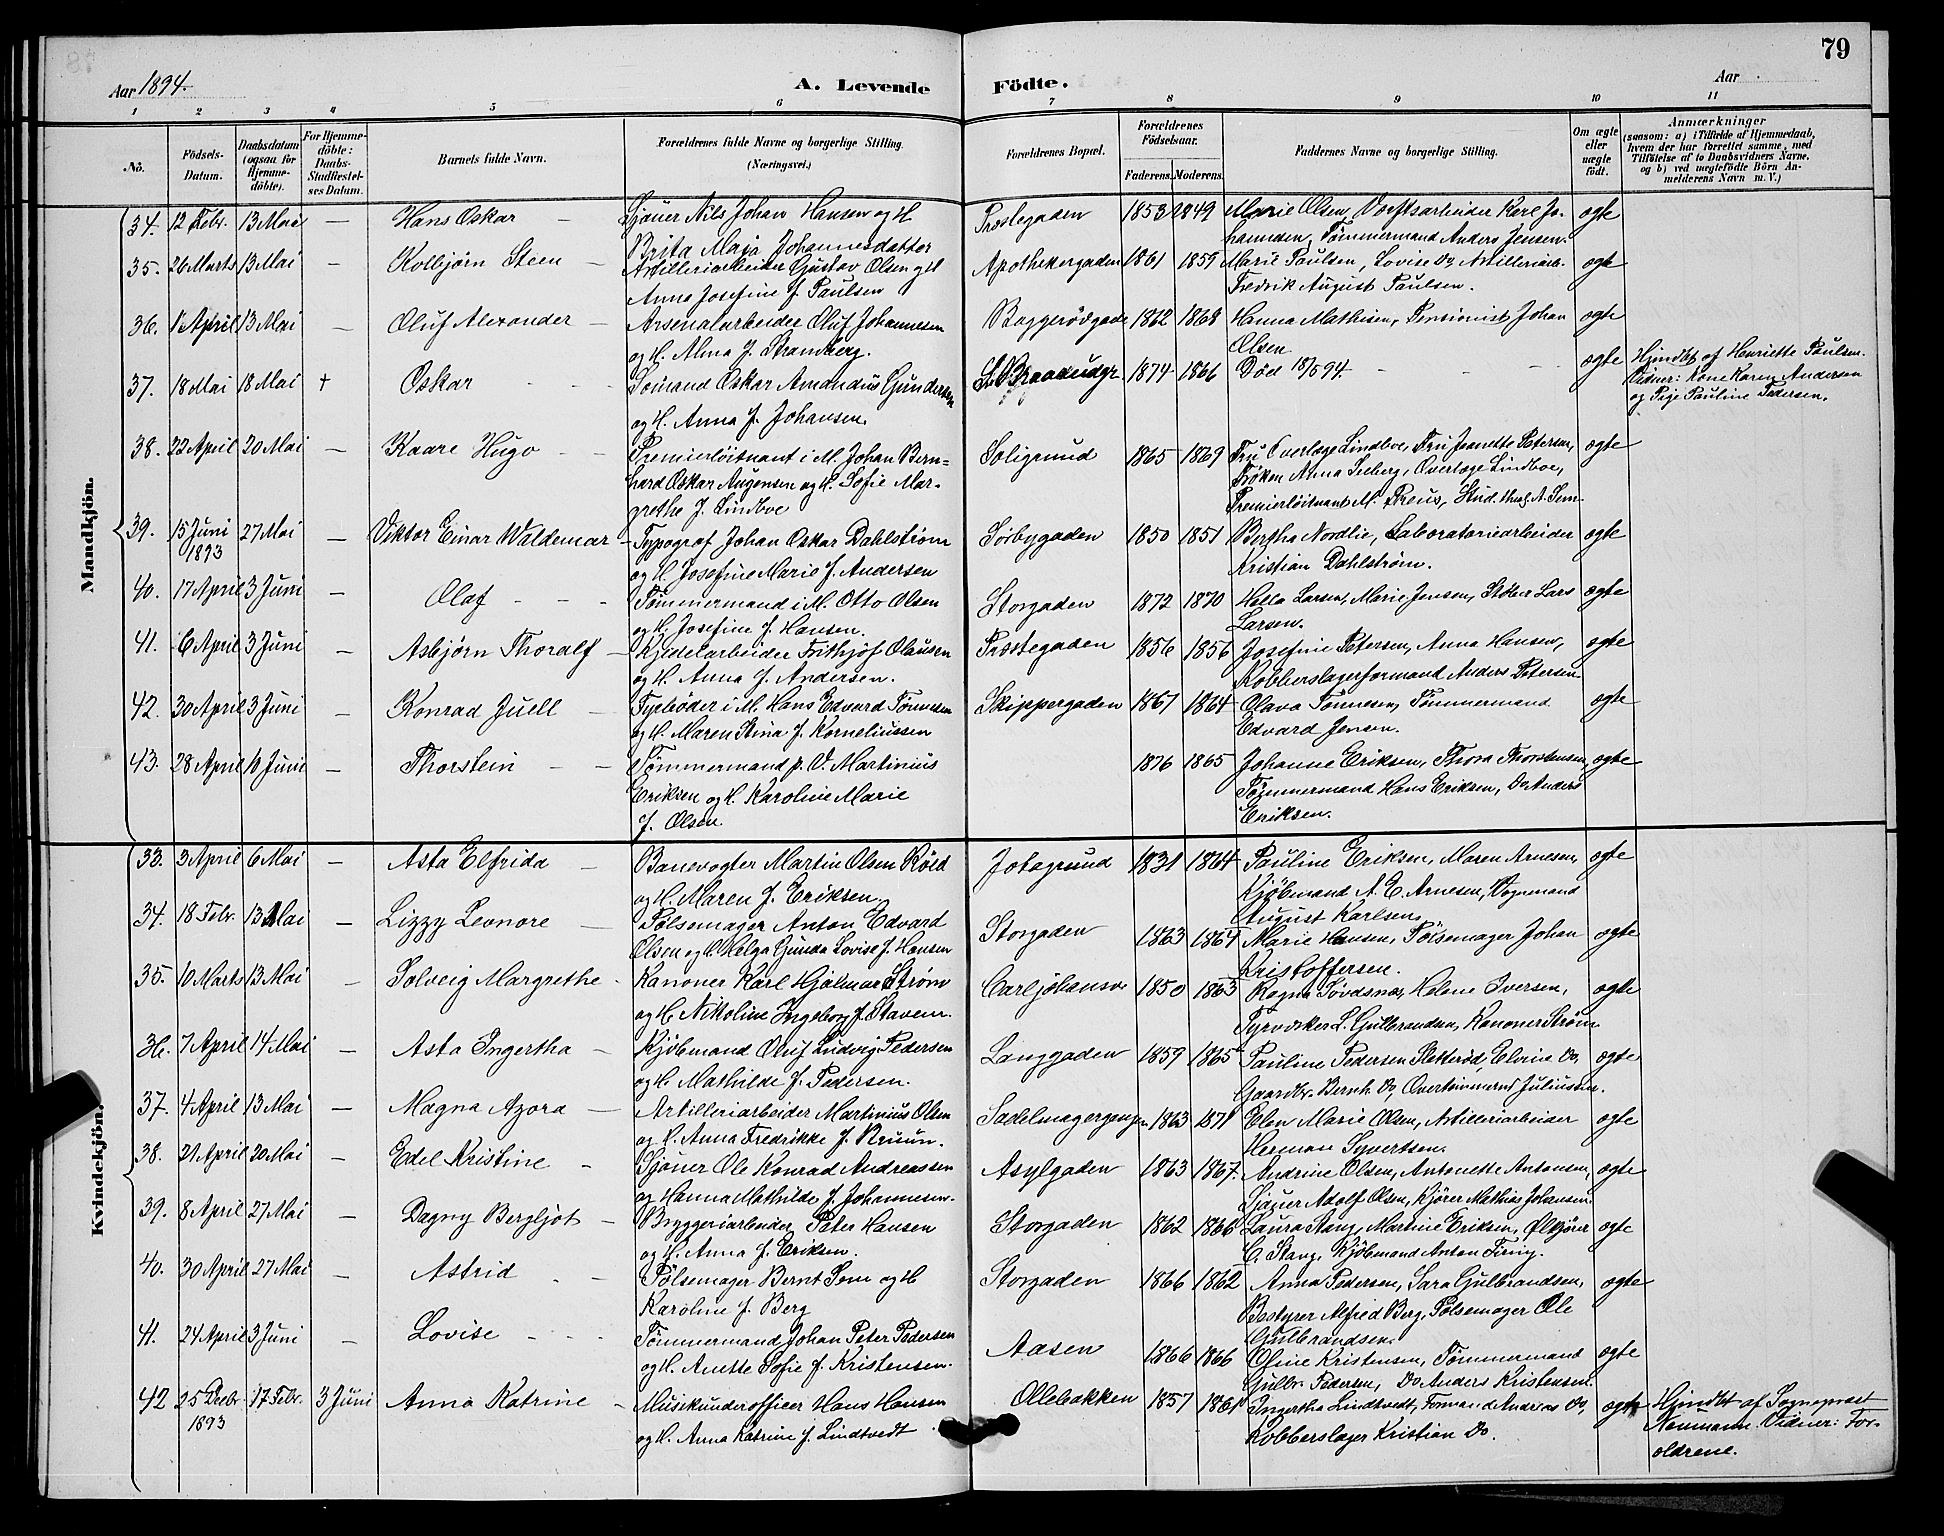 79
Aar 1894.
A. Levende Födte.
Aar
1 2 3 4 5 6 7 8 9 10 11
No.
Födsels-Datum.
Daabsdatum (ogsaa for Hjemme-döbte).
For Hjemme-döbte: Daabs-Stadfæstel-ses Datum.
Barnets fulde Navn.
Forældrenes fulde Navne og borgerlige Stilling. (Næringsvei.)
Forældrenes Bopæl.
Forældrenes Födselsaar.
Faderens. Moderens.
Faddernes Navne og borgerlige Stilling.
Om ægte eller uægte födt.
Anmærkninger
(saasom: a) i Tilfælde af Hjemmedaab, hvem der har forrettet samme, med Tilföielse af to Daabsvidners Navne, og b) ved uægtefödte Börn Anmelderens Navn m. V.)
Mandkjön.
34. 12 Febr. 13 Mai — Hans Oskar — Sjauer Nils Johan Hansen og H Præstegaden 1853 1849 Marie Olsen, Værftsarbeider Karl Jo- ægte
Brita Maja Johannesdatter hannesen, Tømmermand Anders Jensen.
35. 26 Marts 13 Mai — Kolbjørn Steen — Artilleriarbeider Gustav Olsen og H Apothekergaden 1861 1859 Marie Paulsen, Lovise Do, Artilleriarb. ægte
Anna Josefine f. Paulsen Fredrik August Paulsen.
36. 1 April 13 Mai — Oluf Alexander — Arsenalarbeider Oluf Johannesen Baggerødgade 1862 1868 Hanna Mathisen, Pensionist Johan ægte
og H. Alma f. Stramberg. Olsen
37. 18 Mai 18 Mai + Oskar — Sømand Oskar Amandus Gundersen 1874 1866 Død 18/5 94. ægte Hjmdbt af Henriette Paulsen.
og H. Anna f. Johansen. Vidner: Kone Karen Andersen
og Pige Pauline Pedersen.
38. 22 April 20 Mai — Kaare Hugo — Premierløitnant i M. Johan Bern- Soligrund 1865 1869 Fru Overlæge Lindboe, Fru Jeanette Petersen, ægte
hard Oskar Augensen og H. Sofie Mar- Frøken Anna Seeberg, Overlæge Lindboe,
grethe f. Lindboe Premierløitnant M. Preus, Stud. theol. A. Sem.
39. 15 Juni 27 Mai — Viktor Einar Waldemar — Typograf Johan Oskar Dahlstrøm Sørbygaden 1850 1851 Bertha Nordlie, Laboratoriearbeider ægte
1893 og H. Josefine Marie f. Andersen Kristian Dahlstrøm.
40. 17 April 3 Juni — Olaf — Tømmermand i M. Otto Olsen Storgaden 1872 1870 Hella Larsen, Marie Jensen, Støber Lars ægte
og H. Josefine f. Hansen. Larsen.
41. 6 April 3 Juni — Asbjørn Thoralf — Kjedelarbeider Frithjof Olausen Præstegaden 1856 1856 Josefine Petersen, Anna Hansen, ægte
og H. Anna f. Andersen. Kobberslagerformand Anders Petersen
42. 30 April 3 Juni — Konrad Juell — Fyrbøder i M. Hans Edvard Tønnesen Skippergaden 1861 1864 Olava Tønnesen, Tømmermand ægte
og H. Maren Stina f. Korneliussen Edvard Jensen.
43. 28 April 10 Juni — Thorstein — Tømmermand p. V. Martinius 1876 1865 Johanne Eriksen, Thora Thorstensen, ægte
Eriksen og H. Karoline Marie Tømmermand Hans Eriksen, Do Anders
f. Olsen. Eriksen.
Kvindekjön.
33. 3 April 6 Mai — Asta Elfrida — Banevogter Martin Olsen Røed Jotagrund 1831 1864 Pauline Eriksen, Maren Arnesen, ægte
og H. Maren f. Eriksen. Kjøbmand A. E. Arnesen, Vognmand
August Karlsen.
34. 18 Febr. 13 Mai — Lizzy Leonore — Pølsemager Anton Edvard Storgaden 1863 1864 Marie Hansen, Pølsemager Johan ægte
Olsen og H. Helga Gunda Lovise f. Hansen Kristoffersen.
35. 10 Marts 13 Mai — Solveig Margrethe — Kanoner Karl Hjalmar Strøm Carljohansv 1850 1863 Ragna Søvdsnæs, Helene Iversen, ægte
og H. Nikoline Ingeborg f. Stavem. Fyrvrker L. Gulbrandsen, Kanoner Strøm
36. 7 April 14 Mai — Asta Ingertha — Kjøbmand Oluf Ludvig Pedersen Langgaden 1859 1865 Pauline Pedersen Sletterød, Elvine Do, ægte
og H. Mathilde f. Pedersen. Gaardbr. Bernh. Do, Overtømmermd Juliussen.
37. 4 April 13 Mai — Magna Azora — Artilleriarbeider Martinius Olsen Sadelmagergangen 1863 1871 Elen Marie Olsen, Artilleriarbeider ægte
og H. Anna Fredrikke f. Bruun. Herman Syvertsen.
38. 21 April 20 Mai — Edel Kristine — Sjauer Ole Konrad Andreassen Asylgaden 1863 1867. Andrine Olsen, Antonette Antonsen, ægte
og Hanna Mathilde f. Johannesen. Sjauer Adolf Olsen, Kjører Mathias Johansen.
39. 8 April 27 Mai — Dagny Bergljot — Bryggeriarbeider Peter Hansen Storgaden 1862 1866 Laura Stang, Martine Eriksen, Ølkjører ægte
og H. Anna f. Eriksen. C. Stang, Kjøbmand Anton Firing.
40. 30 April 27 Mai — Astrid — Pølsemager Bernt Sem og H Storgaden 1866 1862 Anna Pedersen, Sara Gulbrandsen, ægte
Karoline f. Berg Bestyrer Alfred Berg, Pølsemager Ole
Gulbrandsen.
41. 24 April 3 Juni — Lovise — Tømmermand Johan Peter Pedersen Aasen 1866 1866 Oline Kristensen, Tømmermand ægte
og H. Anette Sofie f. Kristensen. Gulbr. Pedersen, Do Anders Kristensen.
42 25 Decbr 17 Febr. 3 Juni Anna Katrine — Musikunderofficer Hans Hansen Ollebakken 1857 1861 Ingertha Lindtvedt, Formand Andreas Do, ægte Hjmdbt af Sognepræst
1893 og H. Anna Katrine f. Lindtvedt Kobberslager Kristian Do. Neumann. Vidner: For-
ældrene.